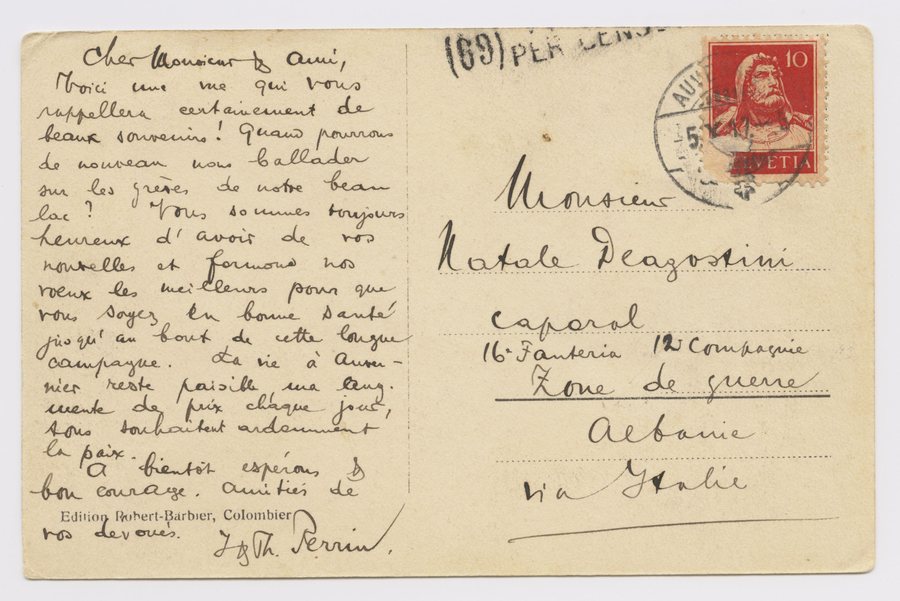 Cher Monsieur & ami,
Voici une vue qui vous
rappellera certainement de
beaux souvenirs! Quand pourrons
de nouveau nous ballader
sur les grèves de notre beau
lac? Nous sommes toujours
heureux d'avoir de vos
nouvelles et formons nos
vœux les meilleurs pour que
vous soyez en bonne santé
jusqu'au bout de cette longue
campagne. La vie à Auver-
nier reste paisible mais aug-
mente de prix chaque jour,
tous souhaitent ardemment
la paix.
A bientôt espérons &
bon courage. Amitiés de
Edition Robert-Barbier, Colombier
vos dévoués.
J & Th. Perrin.
(69) PER CENS
10
HELVETIA
AUVE
Monsieur
Natale Deagostini
caporal
16e Fanteria 12e Compagnie
Zone de guerre
Albanie
via Italie